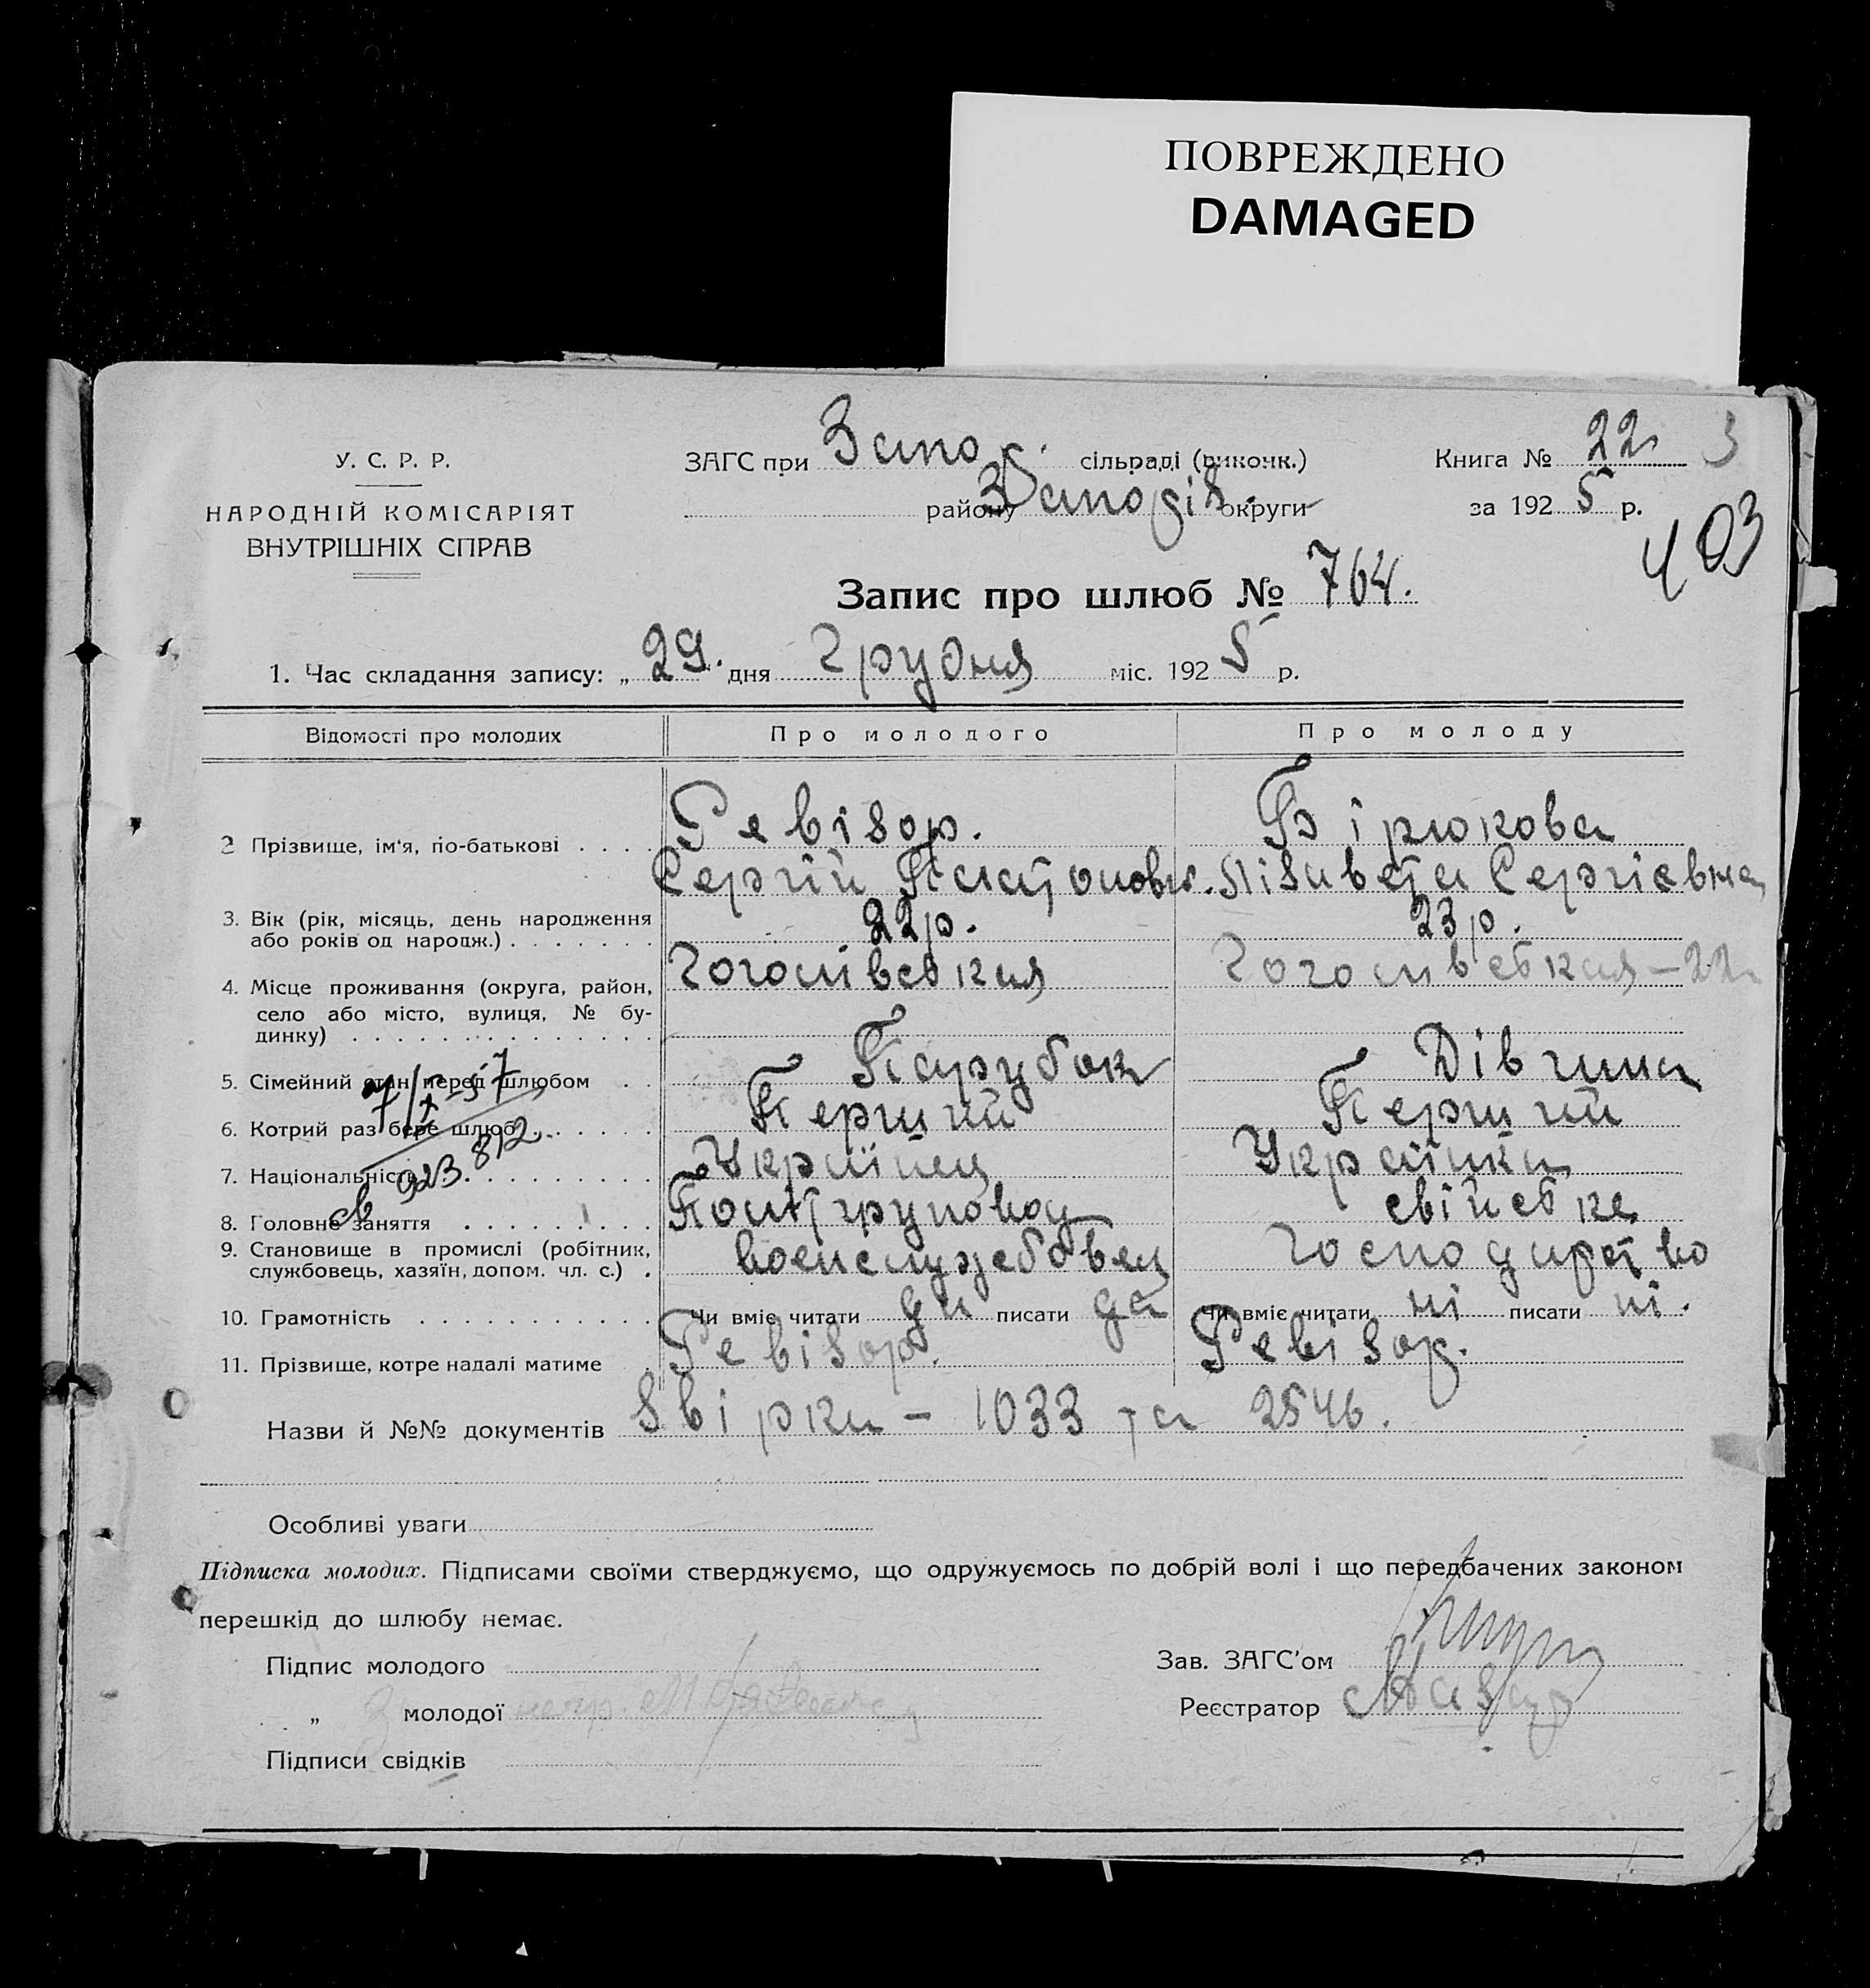 ПОВРЕЖДЕНО
DAMAGED
У. С. Р. Р.
НАРОДНІЙ КОМІСАРІЯТ
ВНУТРІШНІХ СПРАВ
ЗАГС при Запор. сільраді (виконк.)
району Запоріз округи
Книга № 22
3
за 1925 р.
403
Запис про шлюб № 764.
1. Час складання запису: „29." дня Грудня міс. 1925 р.
Відомості про молодих Про молодого Про молоду
2 Прізвище, ім'я, по-батькові . . . . Ревізор. Бірюкова
Сергій Платонов. Лізавета Сергієвна
3. Вік (рік, місяць, день народження
або років од народж.) . . . . . . . 22 р. 23 р.
4. Місце проживання (округа, район, Гоголівская Гоголивская-22
село або місто, вулиця, № бу-
динку) . . . . . . . . . . . . . .
5. Сімейний стан перед шлюбом . . Парубок Дівчина
6. Котрий раз бере шлюб . . . . . . Перший Перший
7. Національність . . . . . . . . . Українец Українка
8. Головне заняття . . . . . . . . . Политгруповод свійське
9. Становище в промислі (робітник,
службовець, хазяїн, допом. чл. с.) . военслужебовец Господарство
10. Грамотність . . . . . . . . . . . Чи вміє читати да писати да Чи вміє читати ні писати ні.
11. Прізвище, котре надалі матиме . Ревізор. Ревізор.
923812
Назви й №№ документів Звірки - 1033 та 2546.
Особливі уваги
Підписка молодих. Підписами своїми стверджуємо, що одружуємось по добрій волі і що передбачених законом
перешкід до шлюбу немає.
Підпис молодого
Зав. ЗАГС'ом
„ молодої
Реєстратор
Підписи свідків